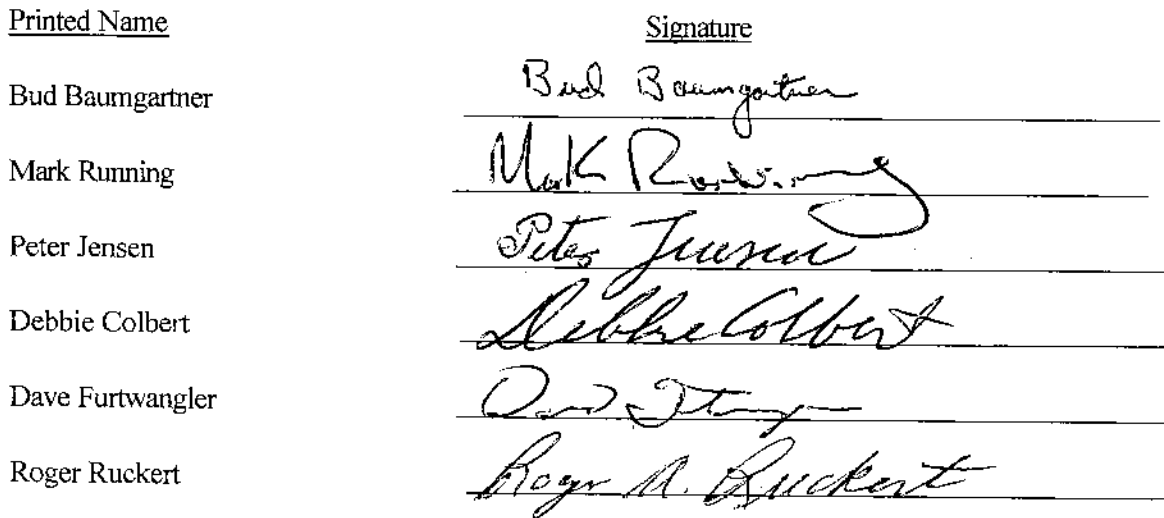 Printed Name Signature
Bud Baumgartner Bud Baumgartner
Mark Running Mark Running
Peter Jensen Peter Jensen
Debbie Colbert Debbie Colbert
Dave Furtwangler
Roger Ruckert Roger A. Ruckert